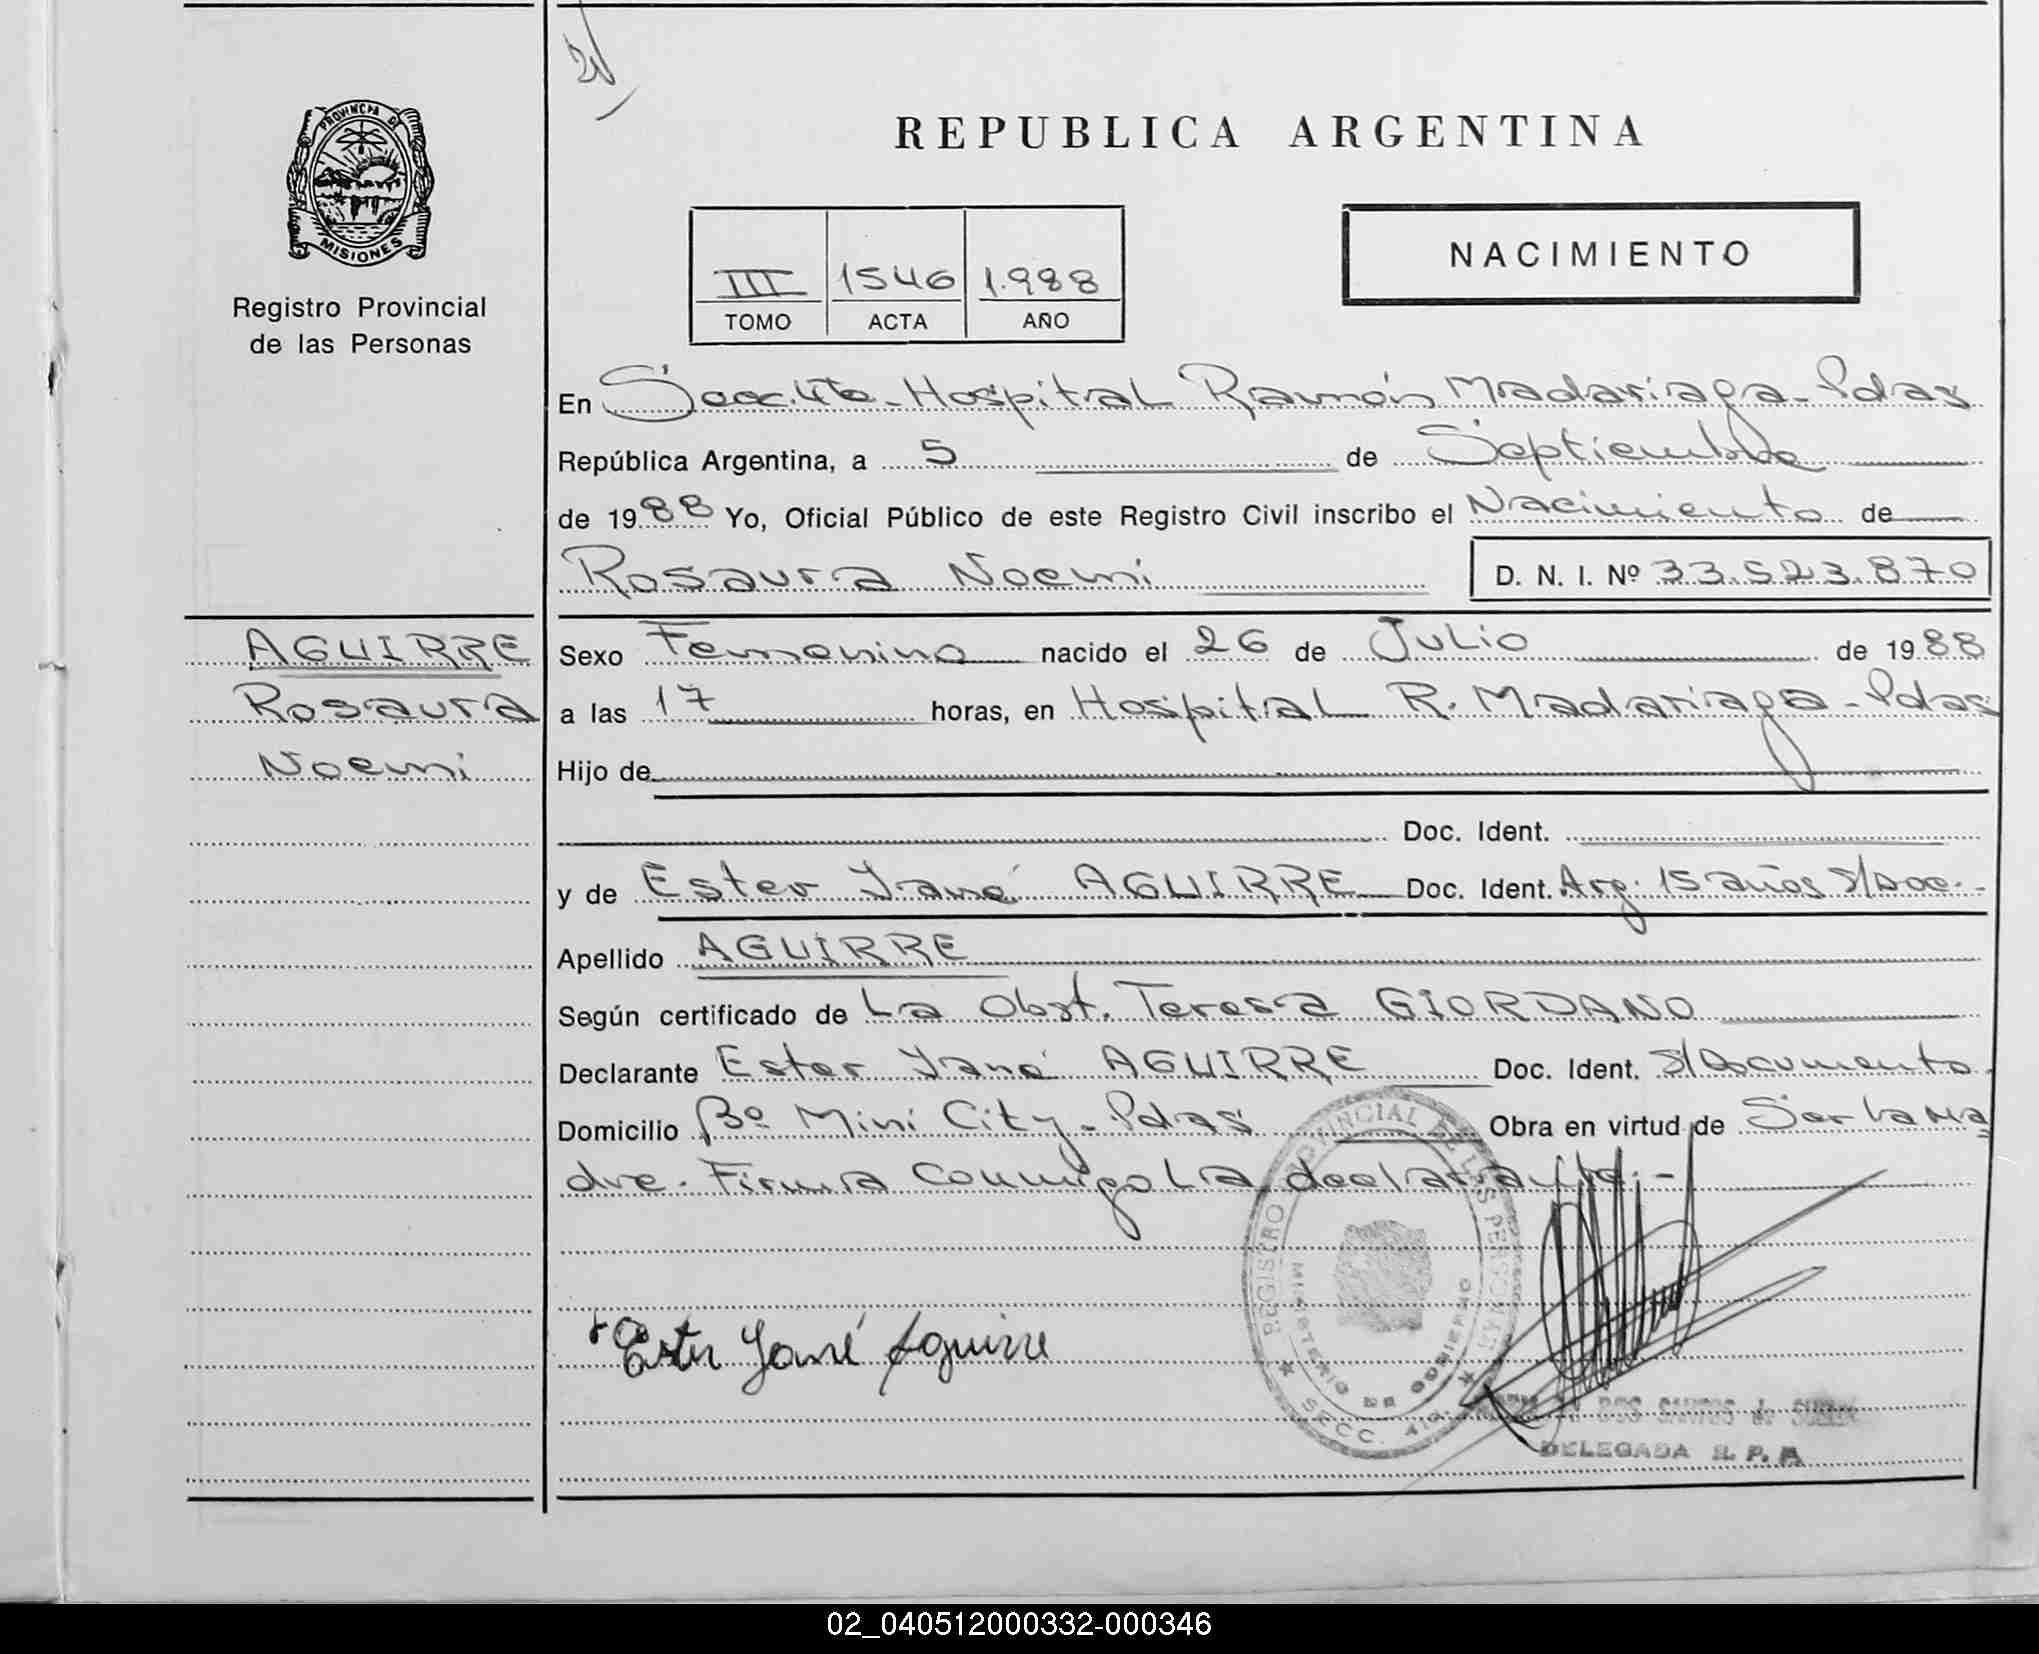 REPUBLICA ARGENTINA
PROVINCIA DE
MISIONES
Registro Provincial
de las Personas
NACIMIENTO
III 1546 1.988
TOMO ACTA AÑO
En Secc. 4ta - Hospital Ramón Madariaga - Pdas
República Argentina, a 5 de Septiembre
de 1988 Yo, Oficial Público de este Registro Civil inscribo el Nacimiento de
Rosaura Noemi D. N. I. Nº 33.523.870
AGUIRRE
Rosaura
Noemi
Sexo Femenino nacido el 26 de Julio de 1988
a las 17 horas, en Hospital R. Madariaga - Pdas
Hijo de
Doc. Ident.
y de Ester Yané AGUIRRE Doc. Ident. Arg. 15 años S/Doc.-
Apellido AGUIRRE
Según certificado de La Obst. Teresa GIORDANO
Declarante Ester Yané AGUIRRE Doc. Ident. S/Documento.
Domicilio Bº Mini City - Pdas Obra en virtud de Ser la Ma
dre. Firma conmigo la declarante.-
REGISTRO PROVINCIAL DE LAS PERSONAS
MINISTERIO DE GOBIERNO
SECC.
Ester Yané Aguirre
DOS SANTOS de
DELEGADA R. P. P.
02_040512000332-000346